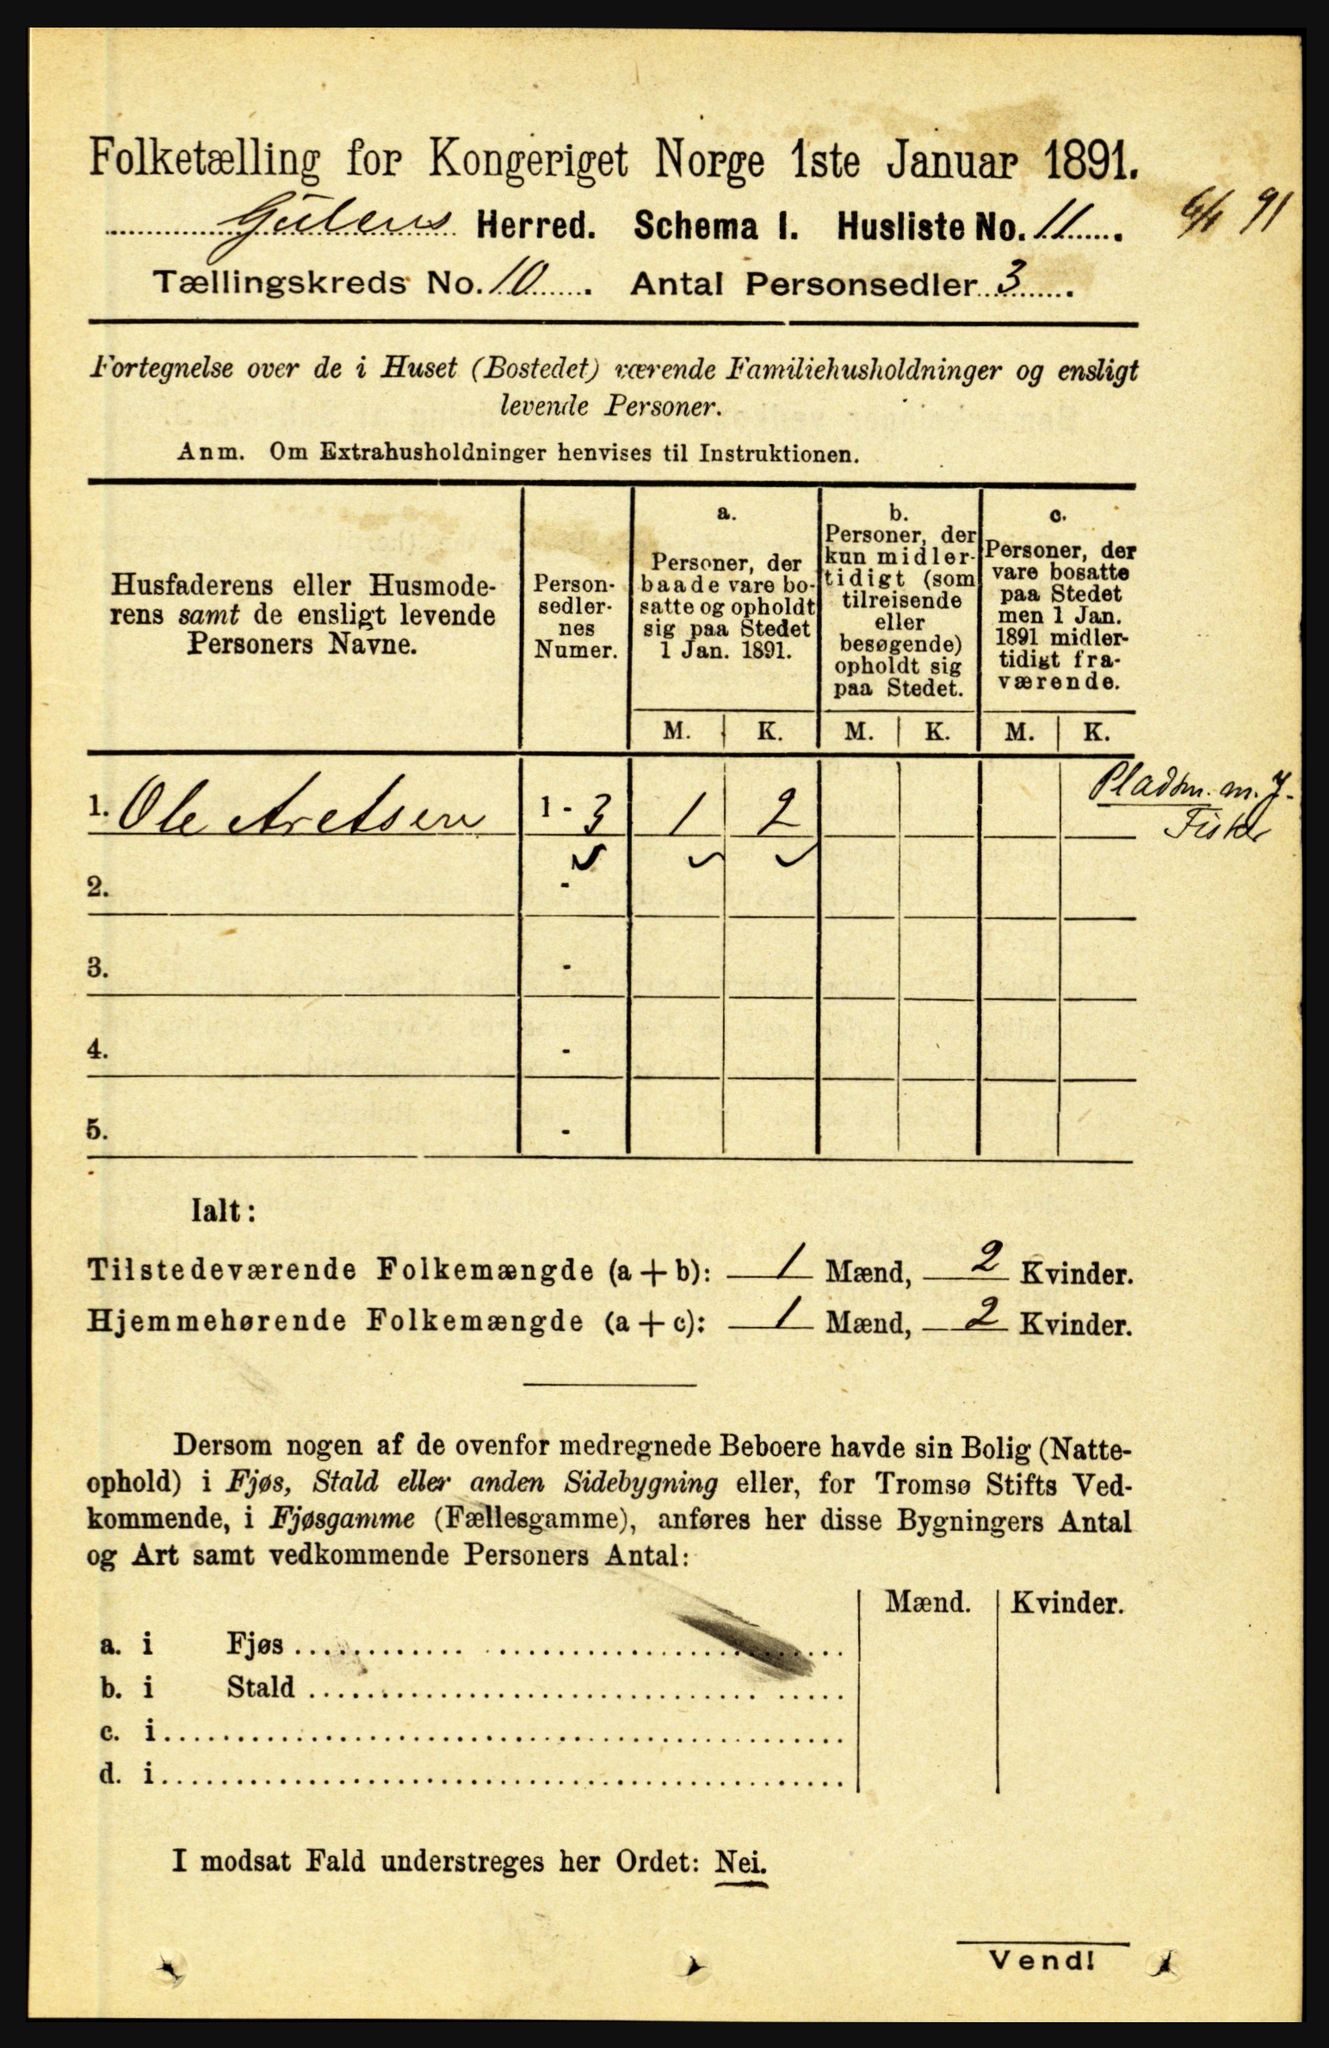 Folketælling for Kongeriget Norge 1ste Januar 1891.
Gulens Herred. Schema I. Husliste No. 11.
91
Tællingskreds No. 10. Antal Personsedler 3.
Fortegnelse over de i Huset (Bostedet) værende Familiehusholdninger og ensligt
levende Personer.
Anm. Om Extrahusholdninger henvises til Instruktionen.
Husfaderens eller Husmode-
rens samt de ensligt levende
Personers Navne.
Person-
sedler-
nes
Numer.
a.
Personer, der
baade vare bo-
satte og opholdt
sig paa Stedet
1 Jan. 1891.
b.
Personer, der
kun midler-
tidigt (som
tilreisende
eller
besøgende)
opholdt sig
paa Stedet.
c.
Personer, der
vare bosatte
paa Stedet
men 1 Jan.
1891 midler-
tidigt fra-
værende.
M. K. M. K. M. K.
1. Ole Aretsen 1 - 3 1 2
Pladsm. m. J.
Fisker
2. -
3. -
4. -
5. -
Ialt:
Tilstedeværende Folkemængde (a + b): 1 Mænd, 2 Kvinder.
Hjemmehørende Folkemængde (a + c): 1 Mænd, 2 Kvinder.
Dersom nogen af de ovenfor medregnede Beboere havde sin Bolig (Natte-
ophold) i Fjøs, Stald eller anden Sidebygning eller, for Tromsø Stifts Ved-
kommende, i Fjøsgamme (Fællesgamme), anføres her disse Bygningers Antal
og Art samt vedkommende Personers Antal:
Mænd. Kvinder.
a. i Fjøs
b. i Stald
c. i
d. i
I modsat Fald understreges her Ordet: Nei.
Vend!